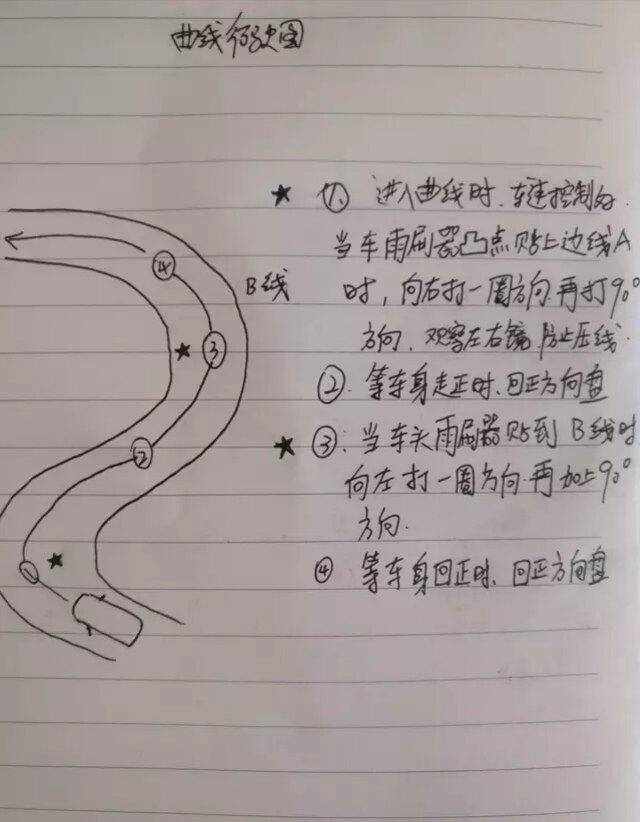 曲线行驶图
★ ①、进入曲线时、车速控制好.
当车雨刷器凸点贴上边线A
时，向右打一圈方向.再打90°
方向、观察左右镜防止压线.
②、等车身走正时、回正方向盘
★ ③：当车头雨刷器贴到B线时
向左打一圈方向.再加上90°
方向.
④ 等车身回正时、回正方向盘
B线
④
★ ③
②
★